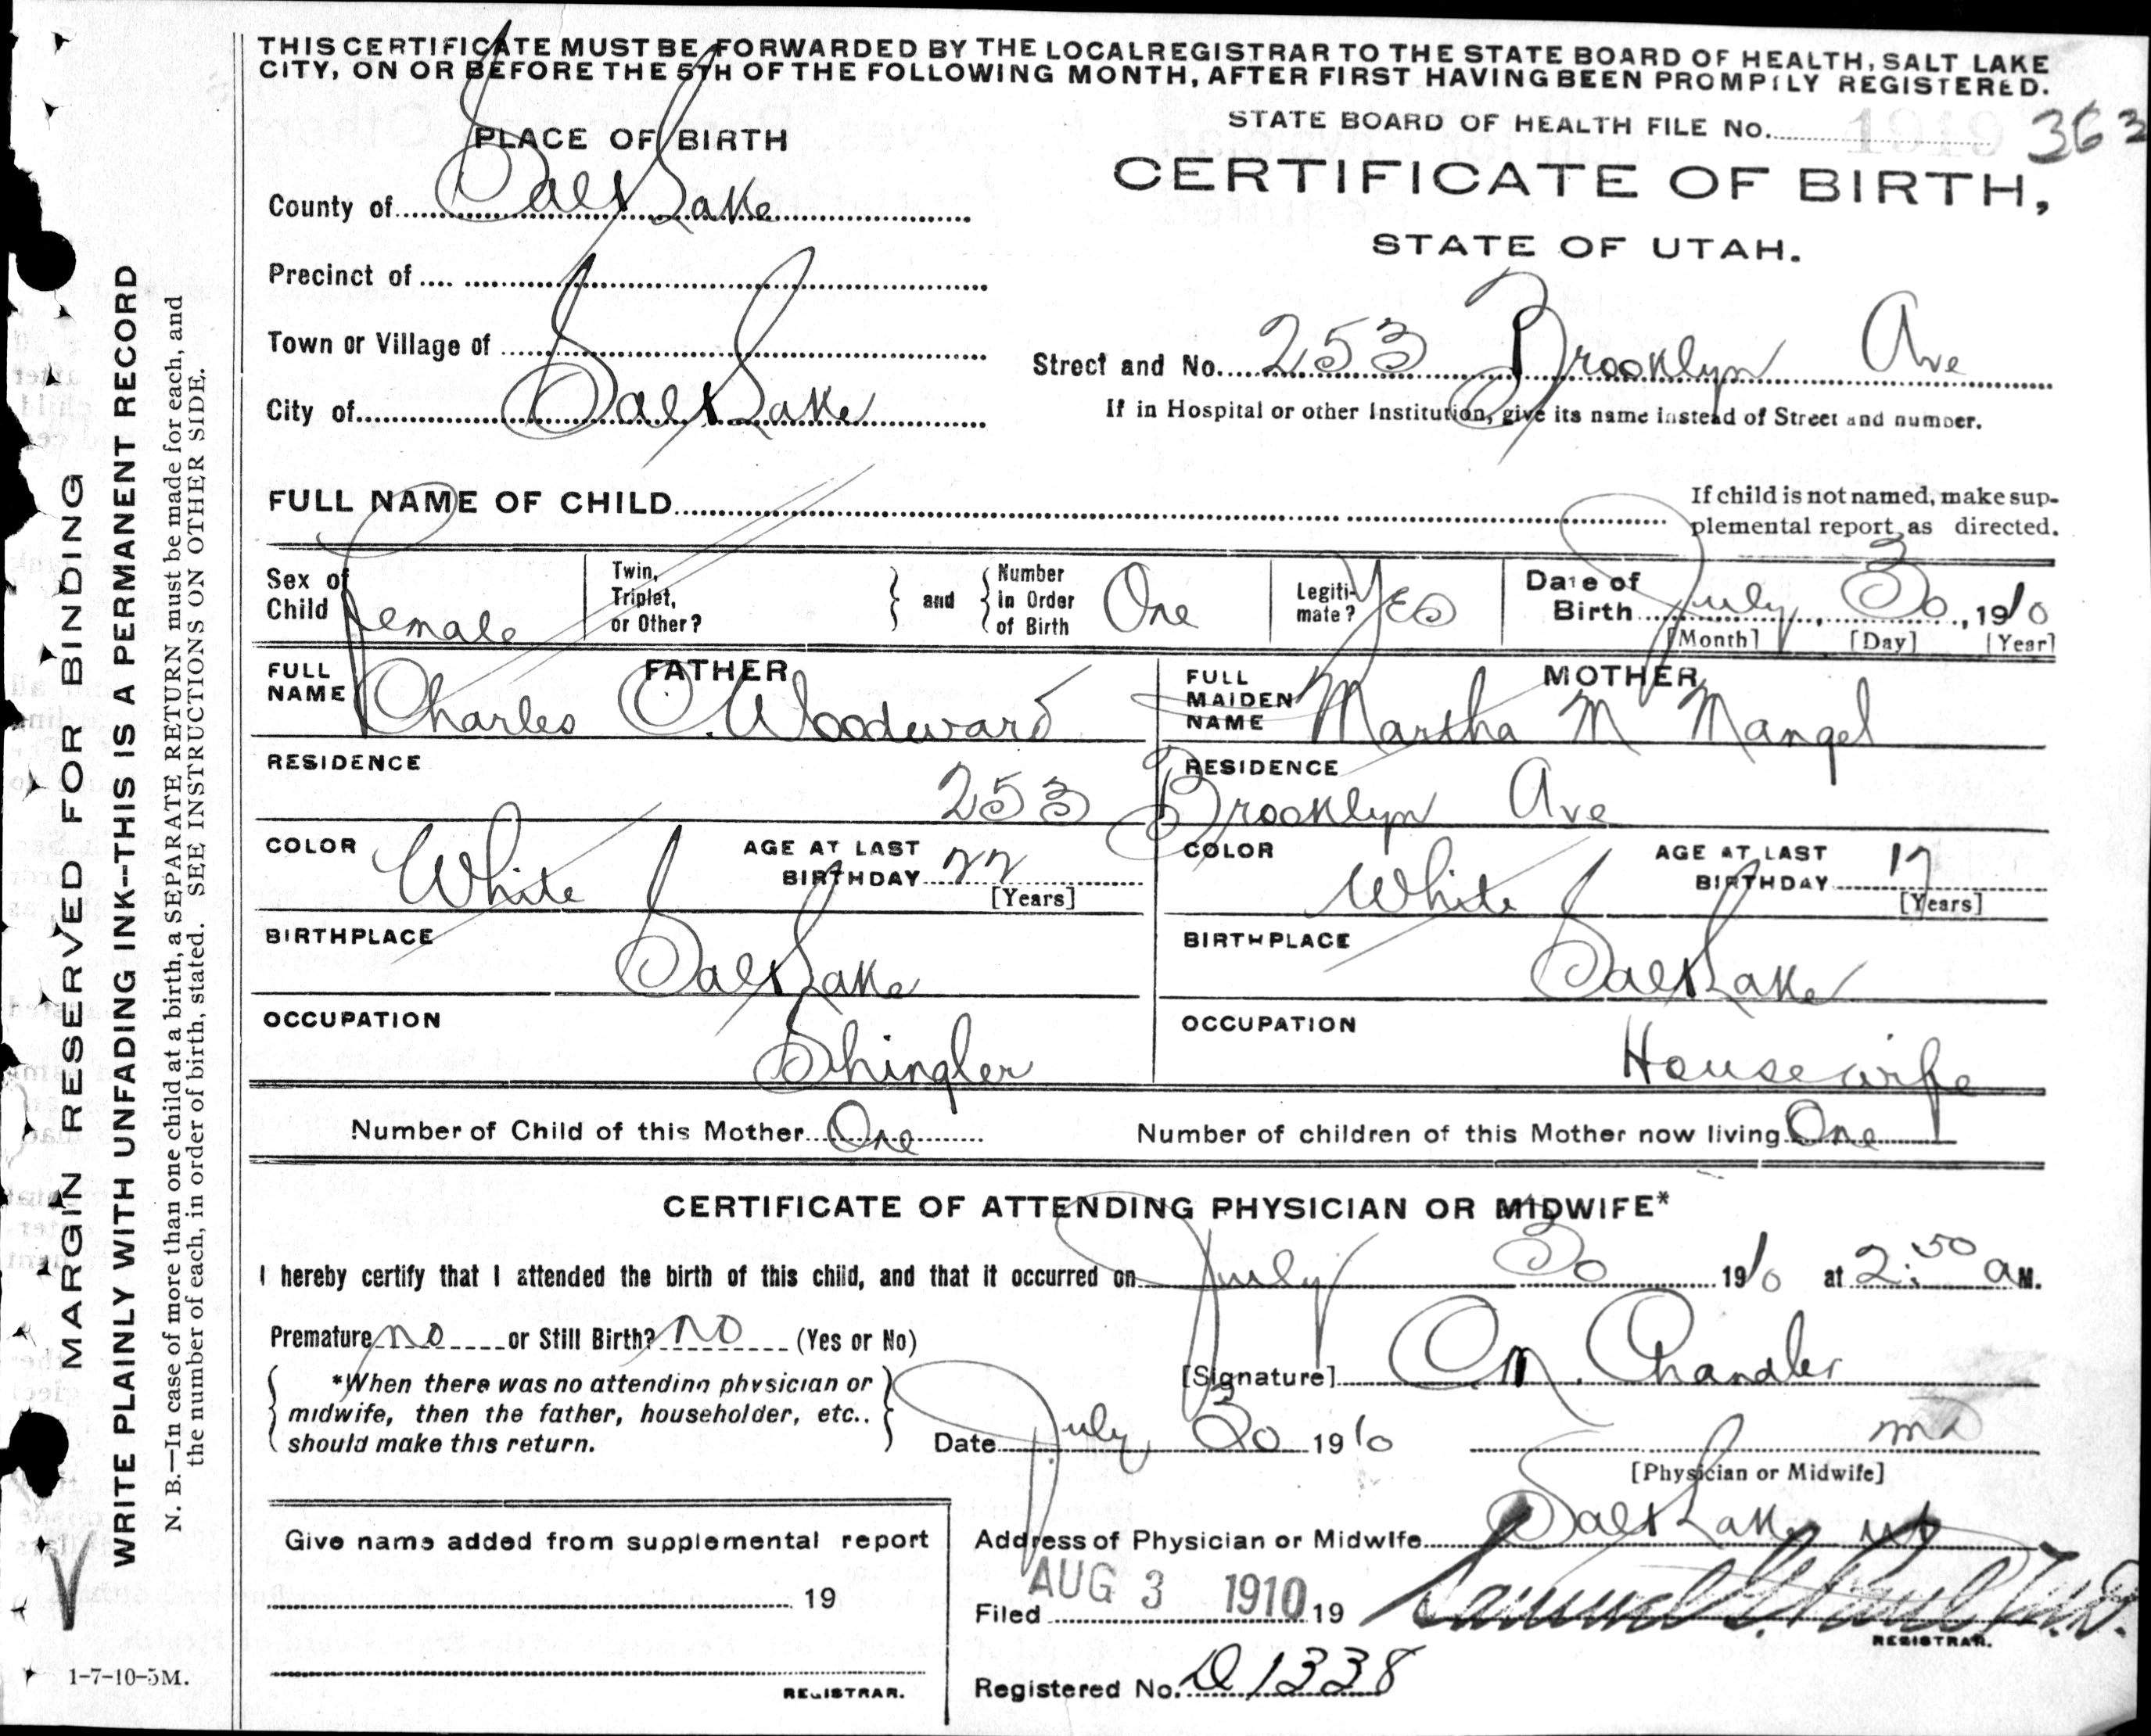 THIS CERTIFICATE MUST BE FORWARDED BY THE LOCAL REGISTRAR TO THE STATE BOARD OF HEALTH, SALT LAKE
CITY, ON OR BEFORE THE 5TH OF THE FOLLOWING MONTH, AFTER FIRST HAVING BEEN PROMPTLY REGISTERED.
STATE BOARD OF HEALTH FILE No. 363
PLACE OF BIRTH
CERTIFICATE OF BIRTH,
STATE OF UTAH.
County of Salt Lake
Precinct of
Town or Village of
City of Salt Lake
Street and No. 253 Brooklyn Ave
If in Hospital or other Institution, give its name instead of Street and number.
FULL NAME OF CHILD
If child is not named, make sup-
plemental report, as directed.
Sex of Child female
Twin, Triplet, or Other?
and Number in Order of Birth One
Legiti-mate? Yes
Date of Birth July 30, 1910
[Month] [Day] [Year]
FATHER
FULL NAME Charles C. Woodward
MOTHER
FULL MAIDEN NAME Martha M Mangel
RESIDENCE 253
RESIDENCE Brooklyn Ave
COLOR White
AGE AT LAST BIRTHDAY 22 [Years]
COLOR White
AGE AT LAST BIRTHDAY 17 [Years]
BIRTHPLACE Salt Lake
BIRTHPLACE Salt Lake
OCCUPATION Shingler
OCCUPATION Housewife
Number of Child of this Mother One
Number of children of this Mother now living One
CERTIFICATE OF ATTENDING PHYSICIAN OR MIDWIFE*
I hereby certify that I attended the birth of this child, and that it occurred on July 30 1910 at 2:50 a M.
Premature no or Still Birth? no (Yes or No)
*When there was no attending physician or
midwife, then the father, householder, etc..
should make this return.
[Signature] Chandler
Date July 30 1910
MD
[Physician or Midwife]
Give name added from supplemental report
19
REGISTRAR.
Address of Physician or Midwife Salt Lake ut
Filed AUG 3 1910 19
Samuel G. Paul M.D.
REGISTRAR.
Registered No. D1338
MARGIN RESERVED FOR BINDING
WRITE PLAINLY WITH UNFADING INK—THIS IS A PERMANENT RECORD
N. B.—In case of more than one child at a birth, a SEPARATE RETURN must be made for each, and
the number of each, in order of birth, stated. SEE INSTRUCTIONS ON OTHER SIDE.
1-7-10-5M.